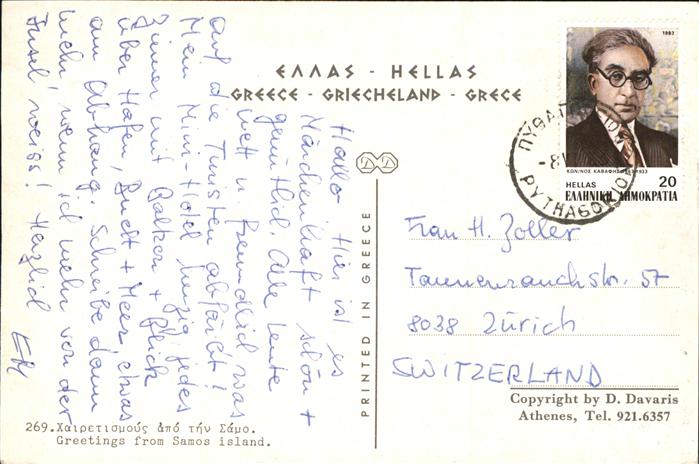 ΕΛΛΑΣ - HELLAS
GREECE - GRIECHELAND - GRECE
Hallo Hier ist es
Märchenhaft schön +
gemütlich. Alle Leute
nett u freundlich was
auf die Touristen abfärbt!
Mein Mini-Hotel jedes
Zimmer mit Balkon + Blick
über Hafen, Bucht + Meer, etwas
am Abhang. Schreibe dann
mehr, wenn ich mehr von der
Insel weiss! Herzlich
PRINTED IN GREECE
1983
ΚΩΝ/ΝΟΣ ΚΑΒΑΦΗΣ 1863-1933
HELLAS 20
ΕΛΛΗΝΙΚΗ ΔΗΜΟΚΡΑΤΙΑ
PYTHAGORIO
Frau H. Zoller
Tannenrauchstr. 57
8038 Zürich
SWITZERLAND
Copyright by D. Davaris
Athenes, Tel. 921.6357
269.Χαιρετισμούς ἀπό τήν Σάμο.
Greetings from Samos island.